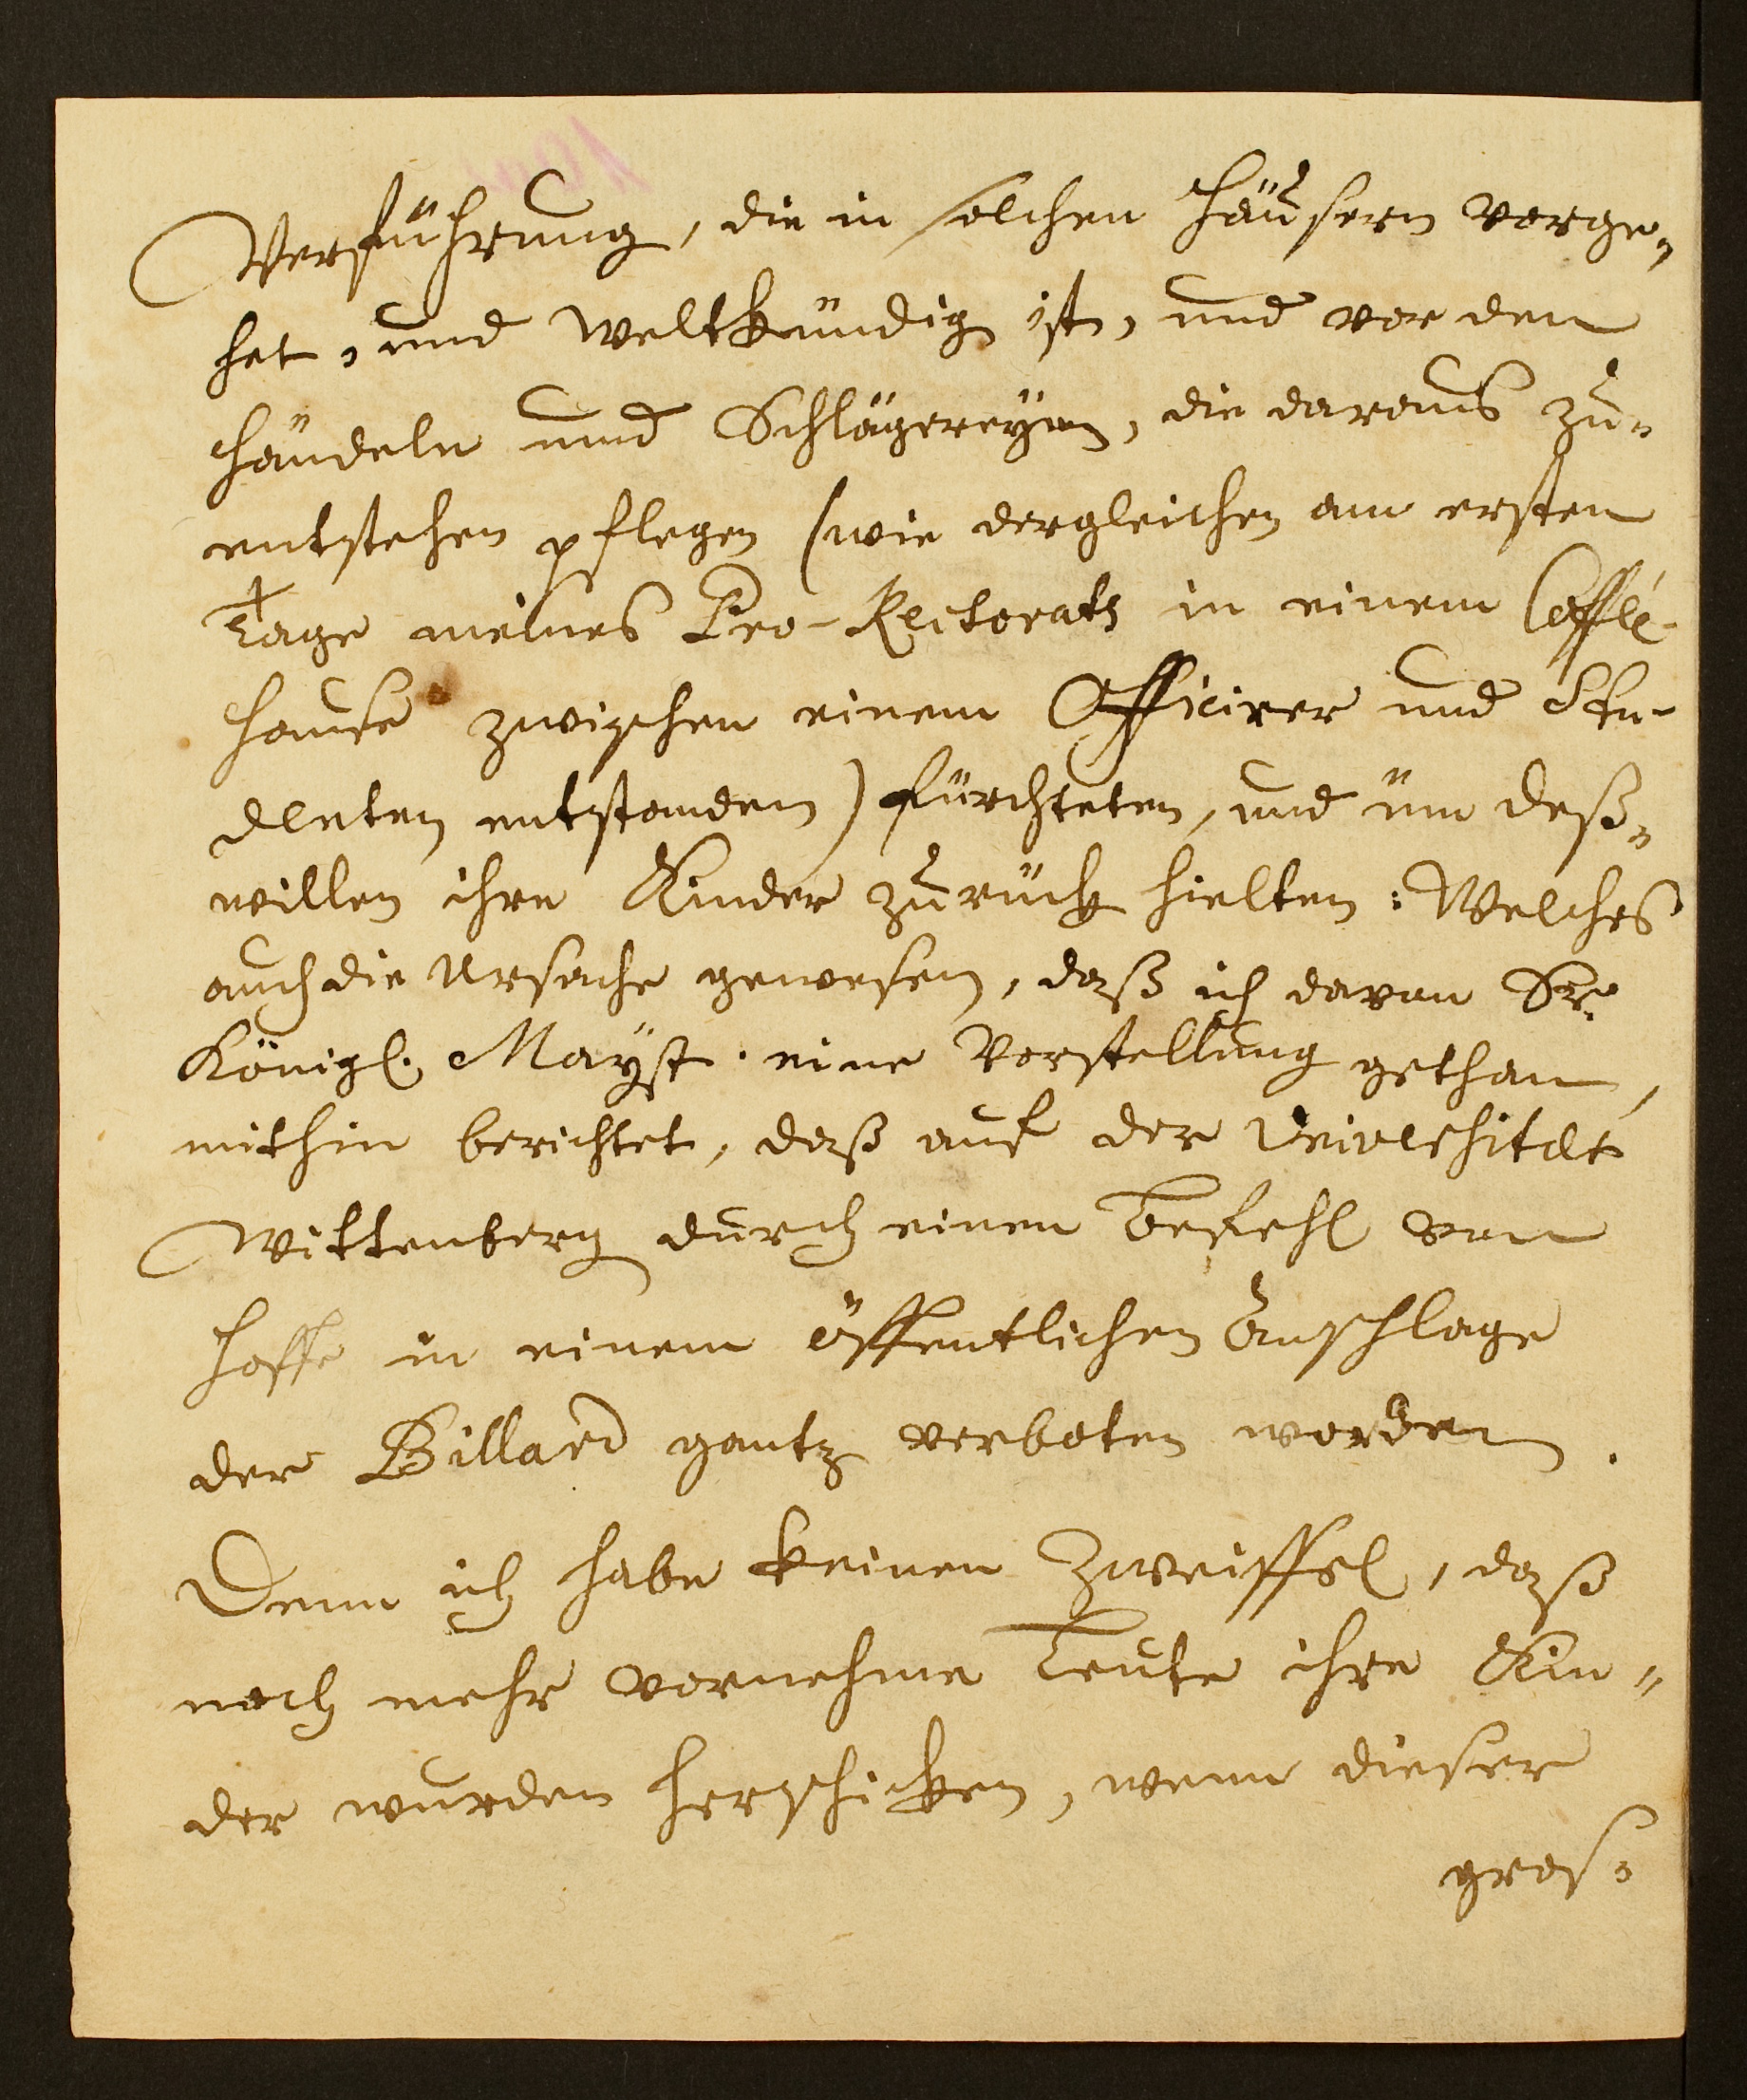 Verführung, die in solchen Häusern vorge„
het, und weltkündig ist, und vor den
Händeln und Schlägereyen, die daraus zu„
entstehen pflegen (wie dergleichen am ersten
Tage meines Pro-Rectorats in einem Coffée-
Hause zwischen einem Officirer und Stu-
denten entstanden) fürchteten, und üm deß„
willen ihre Kinder zurück hielten: Welches
auch die Ursache gewesen, daß ich davon Sr.
Königl. Mayst. eine Vorstellung gethan,
mithin berichtet, daß auf der Universität
Wittenberg durch einen Befehl von
Hoffe in einem öffentlichen Anschlage
der Billard gantz verboten worden.
Denn ich habe keinen Zweiffel, daß
noch mehr vornehme Leute ihre Kin„
der wurden herschicken, wenn dieser
gros„